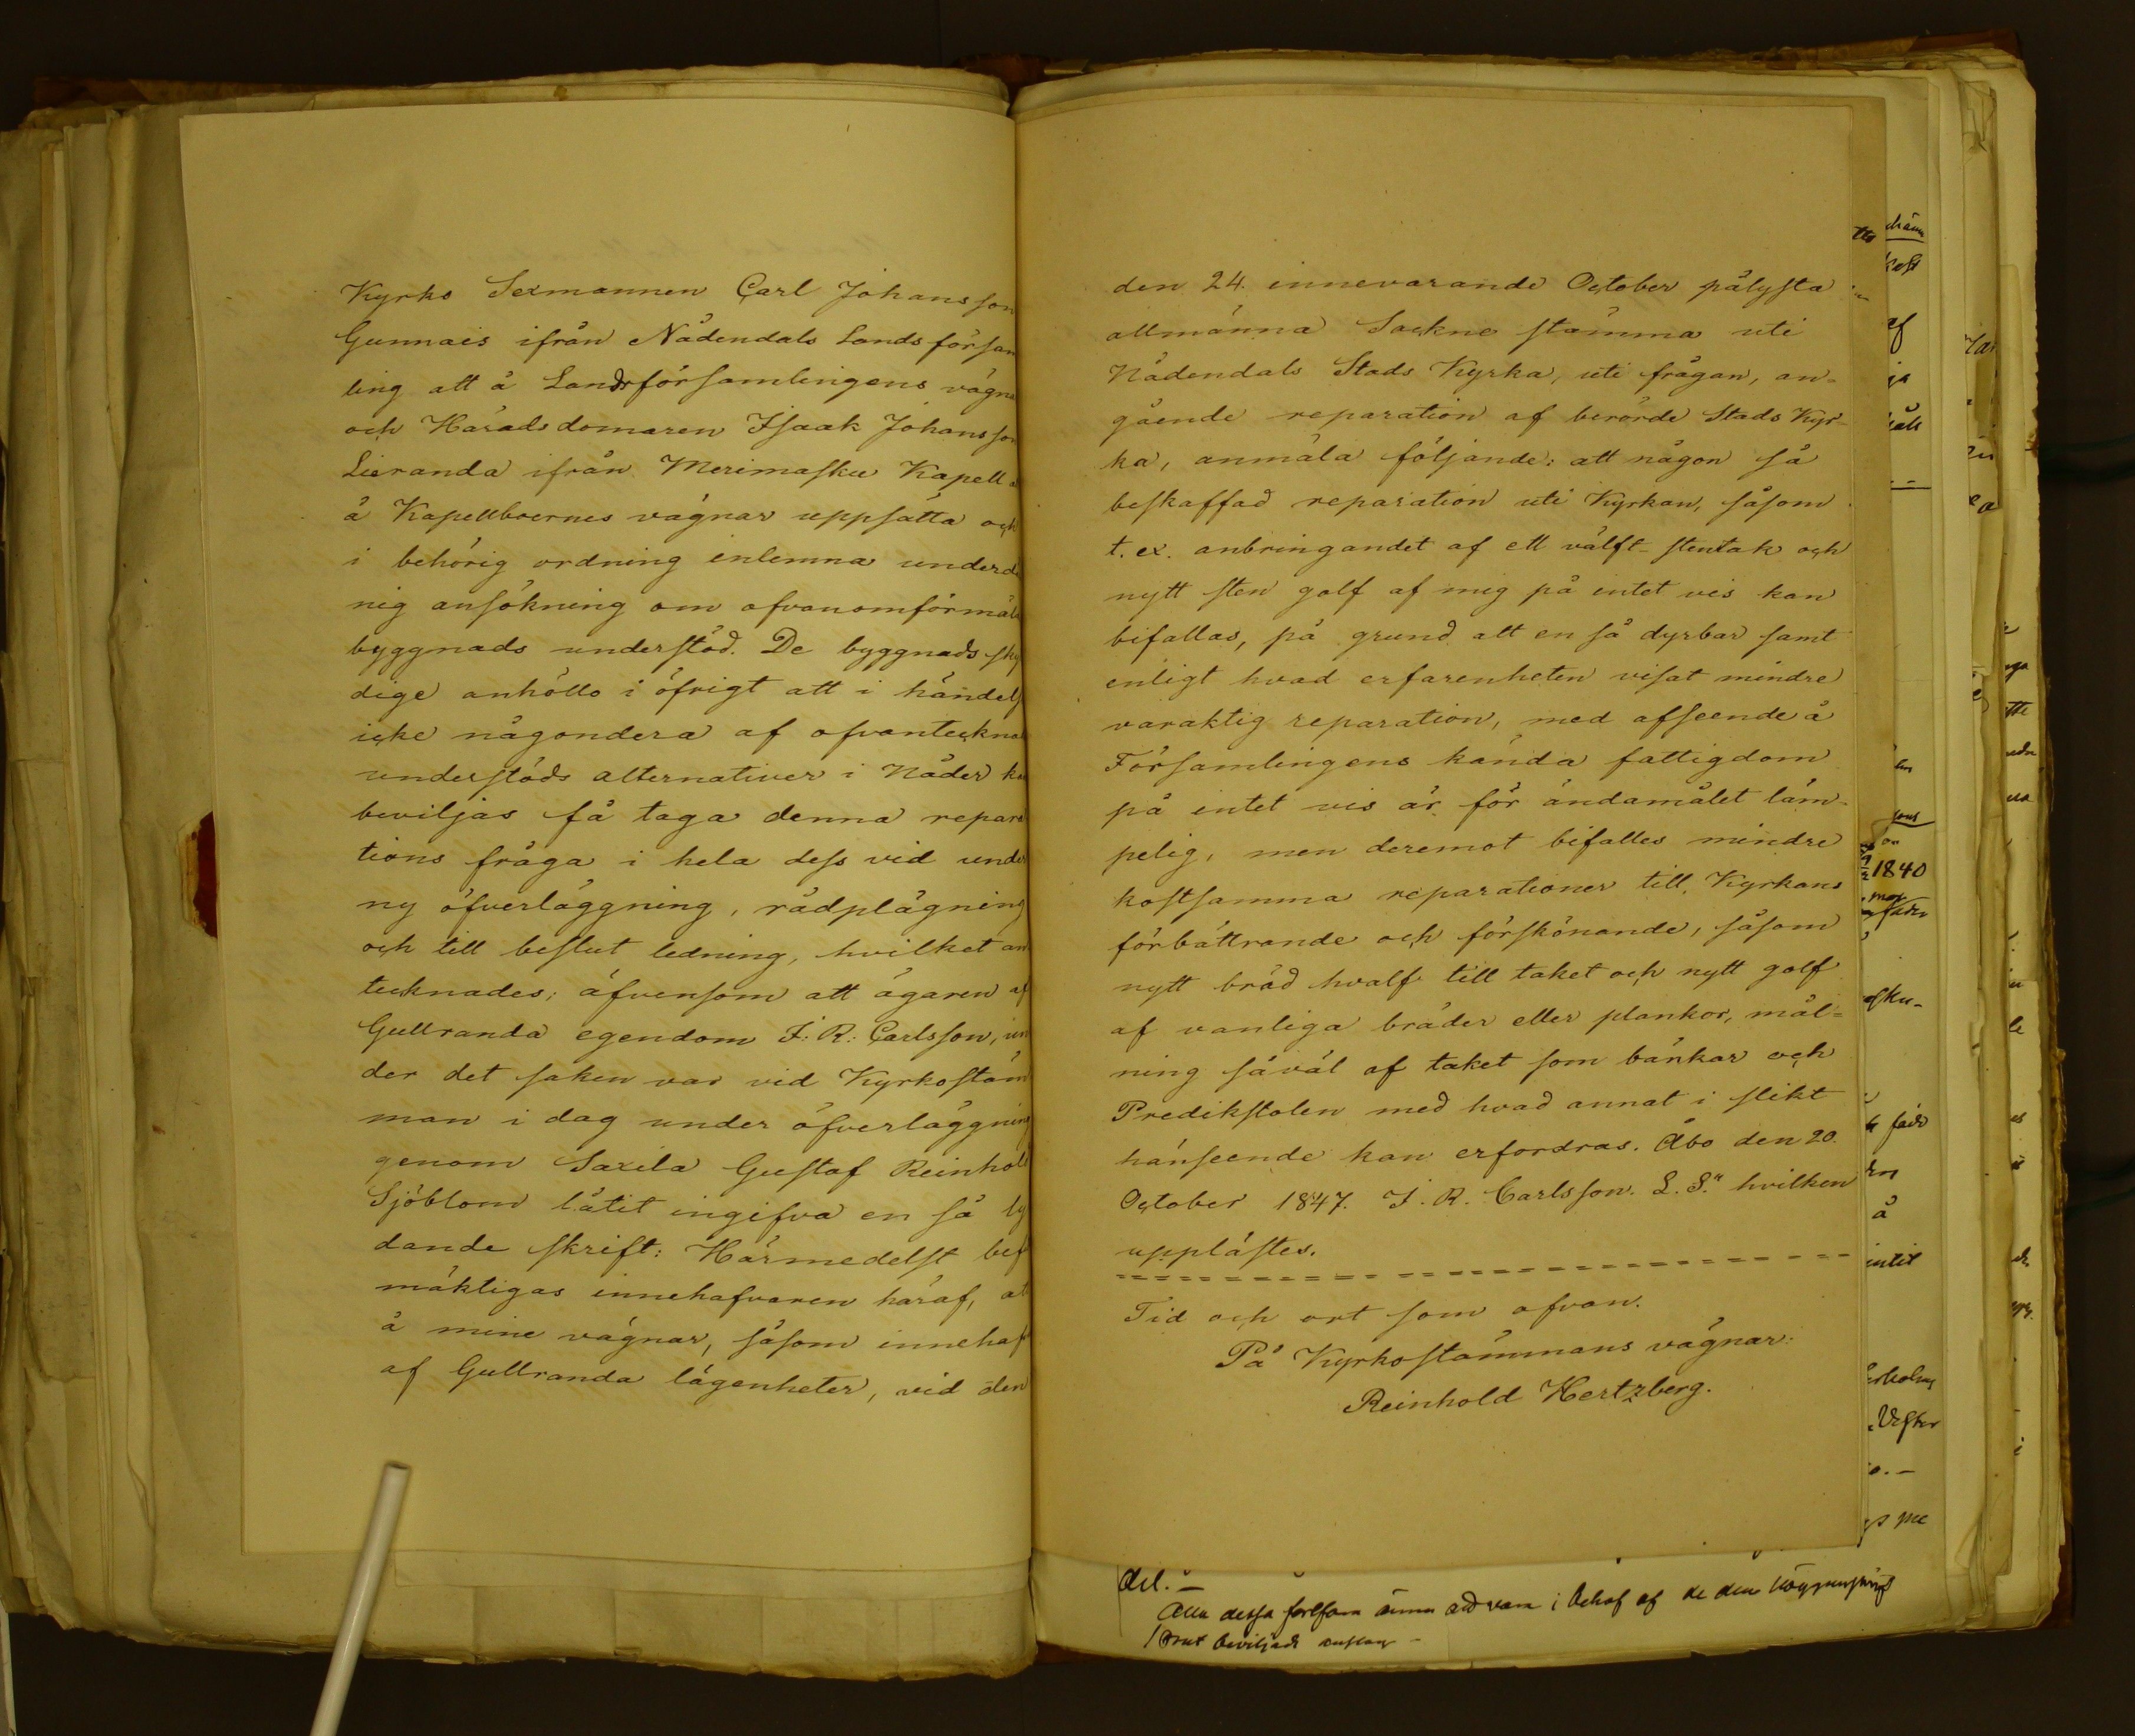 Kyrko Sexmannen Carl Johansson
Gunnais ifrån Nådendals Landsförsam
ling att å Landsförsamlingens vägna
och Häradsdomaren Isaak Johansson
Lieranda ifrån Merimasku Kapell a
å Kapellboernes vägnar uppsätta och
i behörig ordning inlemna underdå
nig ansökning om ofvanomförmäl
byggnads understöd. De byggnads sky
dige anhöllo i öfrigt att i händels
icke någondera af ofvanteckna
understöds alternativer i Nåder ka
beviljas få taga denna repara
tions fråga i hela dess vid under
ny öfverläggning, rådplägning
och till beslut ledning, hvilket an
tecknades; äfvensom att ägaren af
Gullranda egendom J: R: Carlsson, un
der det saken var vid Kyrkostäm
man i dag under öfverläggning
genom Saxila Gustaf Reinhold
Sjöblom låtit ingifva en så ly
dande skrift: Härmedelst bef
mäktigas innehafvaren häraf, at
å mine vägnar, såsom innehaf
af Gullranda lägenheter, vid den
den 24. innevarande October pålysta
allmänna Sockne stämma uti
Nådendals Stads Kyrka, uti frågan, an=
gående reparation af berörde Stads Kyr-
ka, anmäla följande: att någon så
beskaffad reparation uti Kyrkan, såsom
t. ex. anbringandet af ett välft stentak och
nytt sten golf af mig på intet vis kan
bifallas, på grund att en så dyrbar samt
enligt hvad erfarenheten visat mindre
varaktig reparation, med afseende å
Församlingens kända fattigdom
på intet vis är för ändamålet läm-
pelig, men deremot bifalles mindre
kostsamma reparationer till Kyrkans
förbättrande och förskönande, såsom
nytt bräd hvalf till taket och nytt golf
af vanliga bräder eller plankor, mål=
ning såväl af taket som bänkar och
Predikstolen med hvad annat i slikt
hänseende kan erfordras. Åbo den 20.
October 1847. J. R. Carlsson. L. S." hvilken
upplästes.
Tid och ort som ofvan.
På Kyrkostämmans vägnar:
Reinhold Hertzberg.
1840
del. -
Alla dessa i behof af de
beviljade